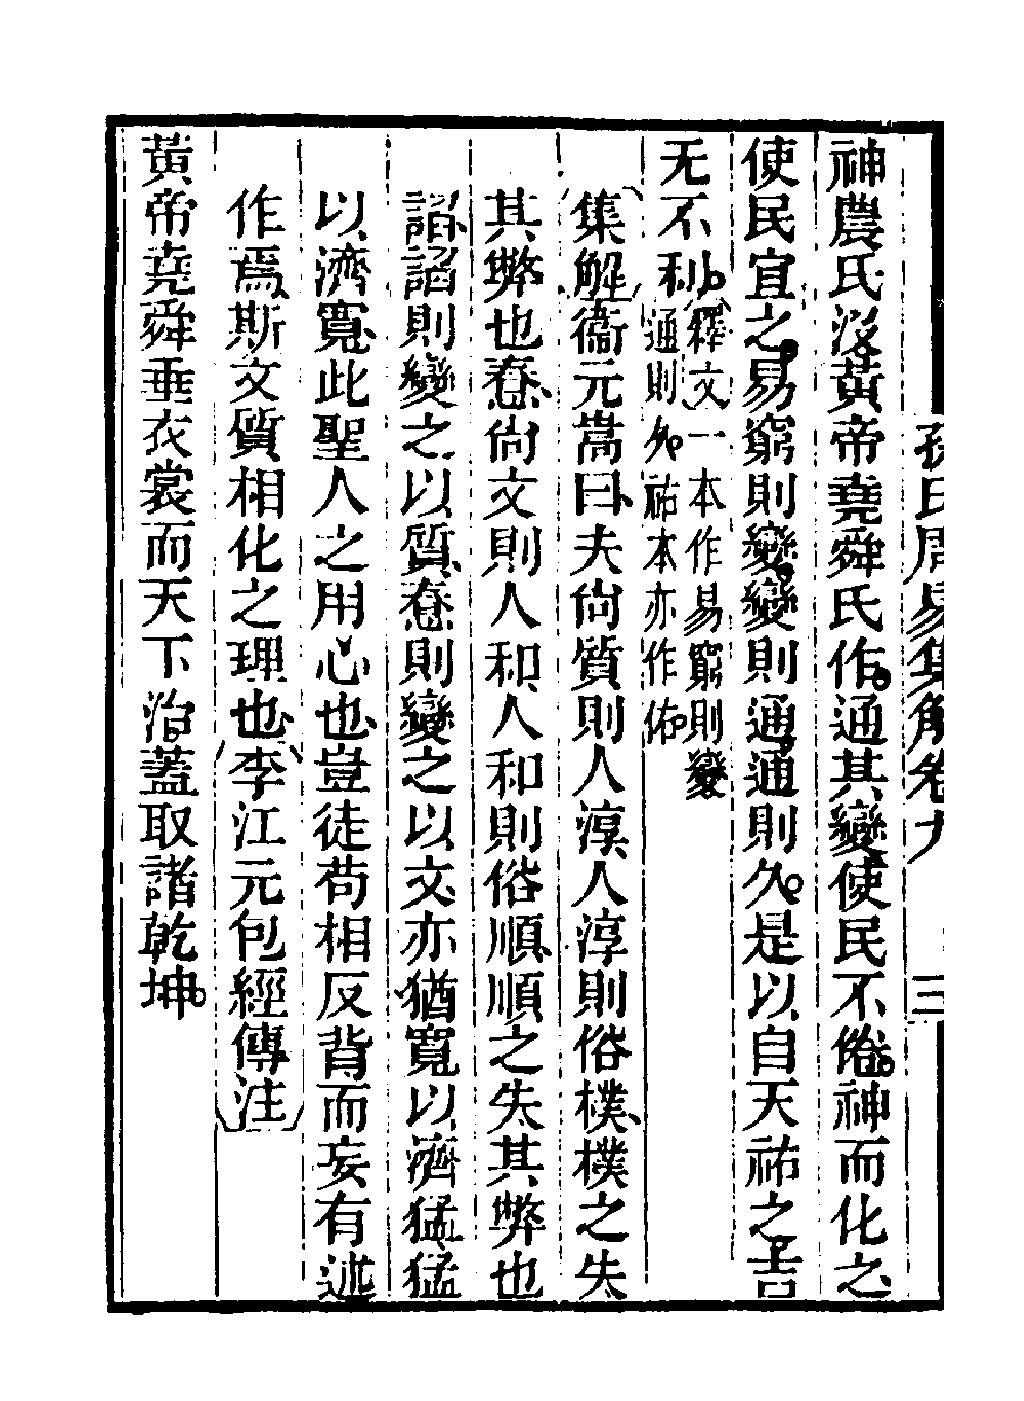 孫氏周易集解卷九 三
神農氏沒黃帝堯舜氏作通其變使民不倦神而化之
使民宜之易窮則變變則通通則久是以自天祐之吉
无不利
釋文一本作易窮則變
通則久祐本亦作佑
集解衞元嵩曰夫尙質則人淳人淳則俗樸樸之失
其弊也惷尙文則人和人和則俗順順之失其弊也
諂諂則變之以質惷則變之以文亦猶寬以濟猛猛
以濟寬此聖人之用心也豈徒苟相反背而妄有述
作焉斯文質相化之理也李江元包經傳注
黃帝堯舜垂衣裳而天下治蓋取諸乾坤